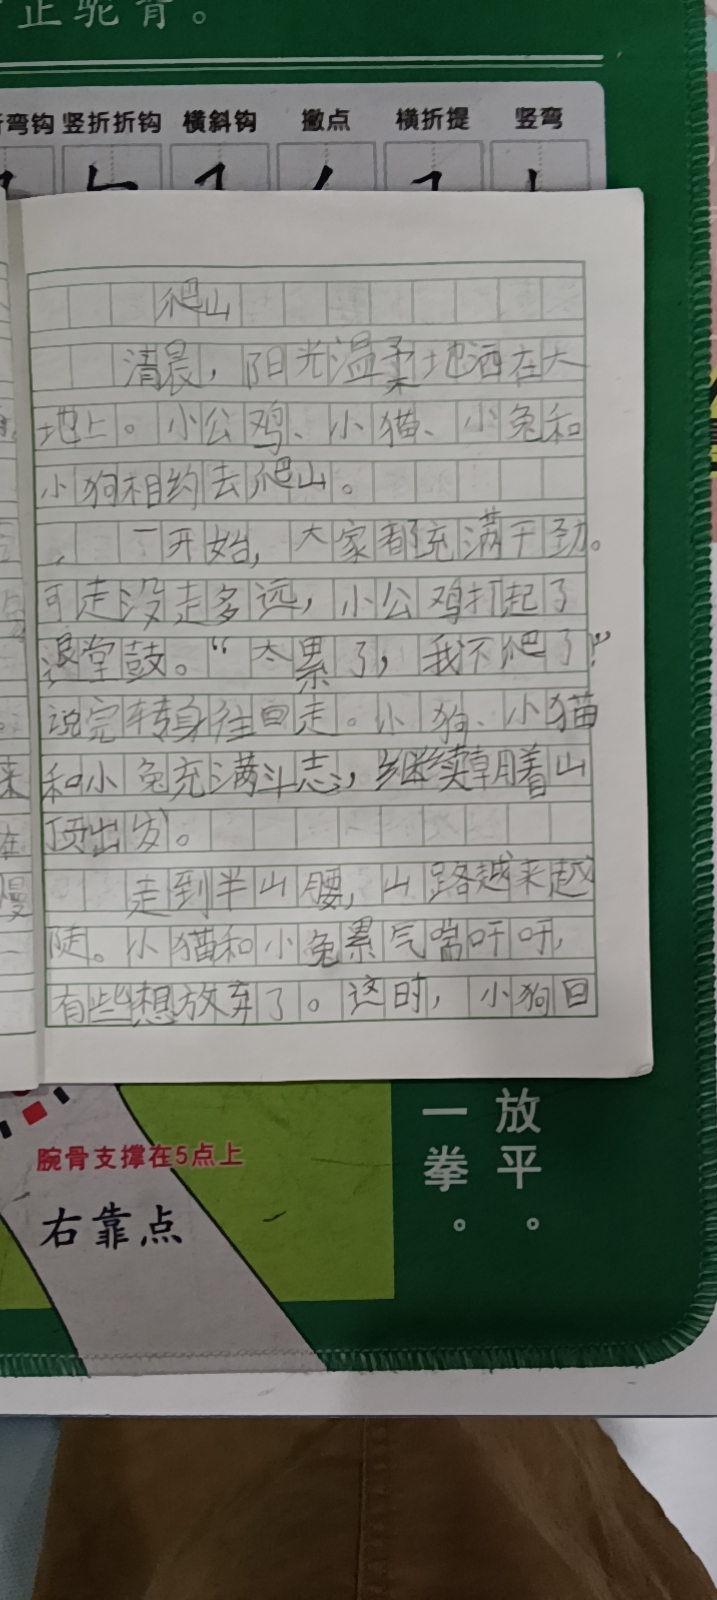 正驼背。
弯钩 竖折折钩 横斜钩 撇点 横折提 竖弯
爬山
清晨，阳光温柔地洒在大
地上。小公鸡、小猫、小兔和
小狗相约去爬山。
一开始，大家都充满干劲。
可走没走多远，小公鸡打起了
退堂鼓。“太累了，我不爬了”
说完转身往回走。小狗、小猫
和小兔充满斗志，继续朝着山
顶出发。
走到半山腰，山路越来越
陡。小猫和小兔累气喘吁吁，
有些想放弃了。这时，小狗日
腕骨支撑在5点上
右靠点
放平。
一拳。